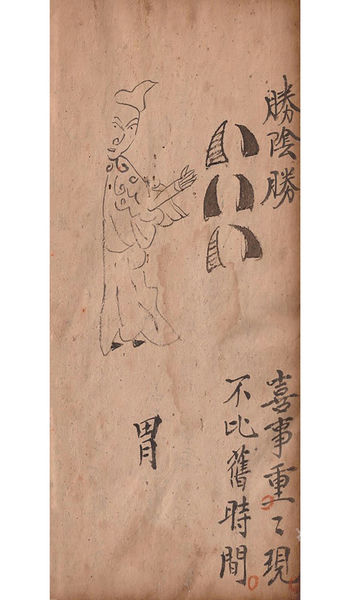 勝陰勝
喜事重々現
不比舊時間
胃